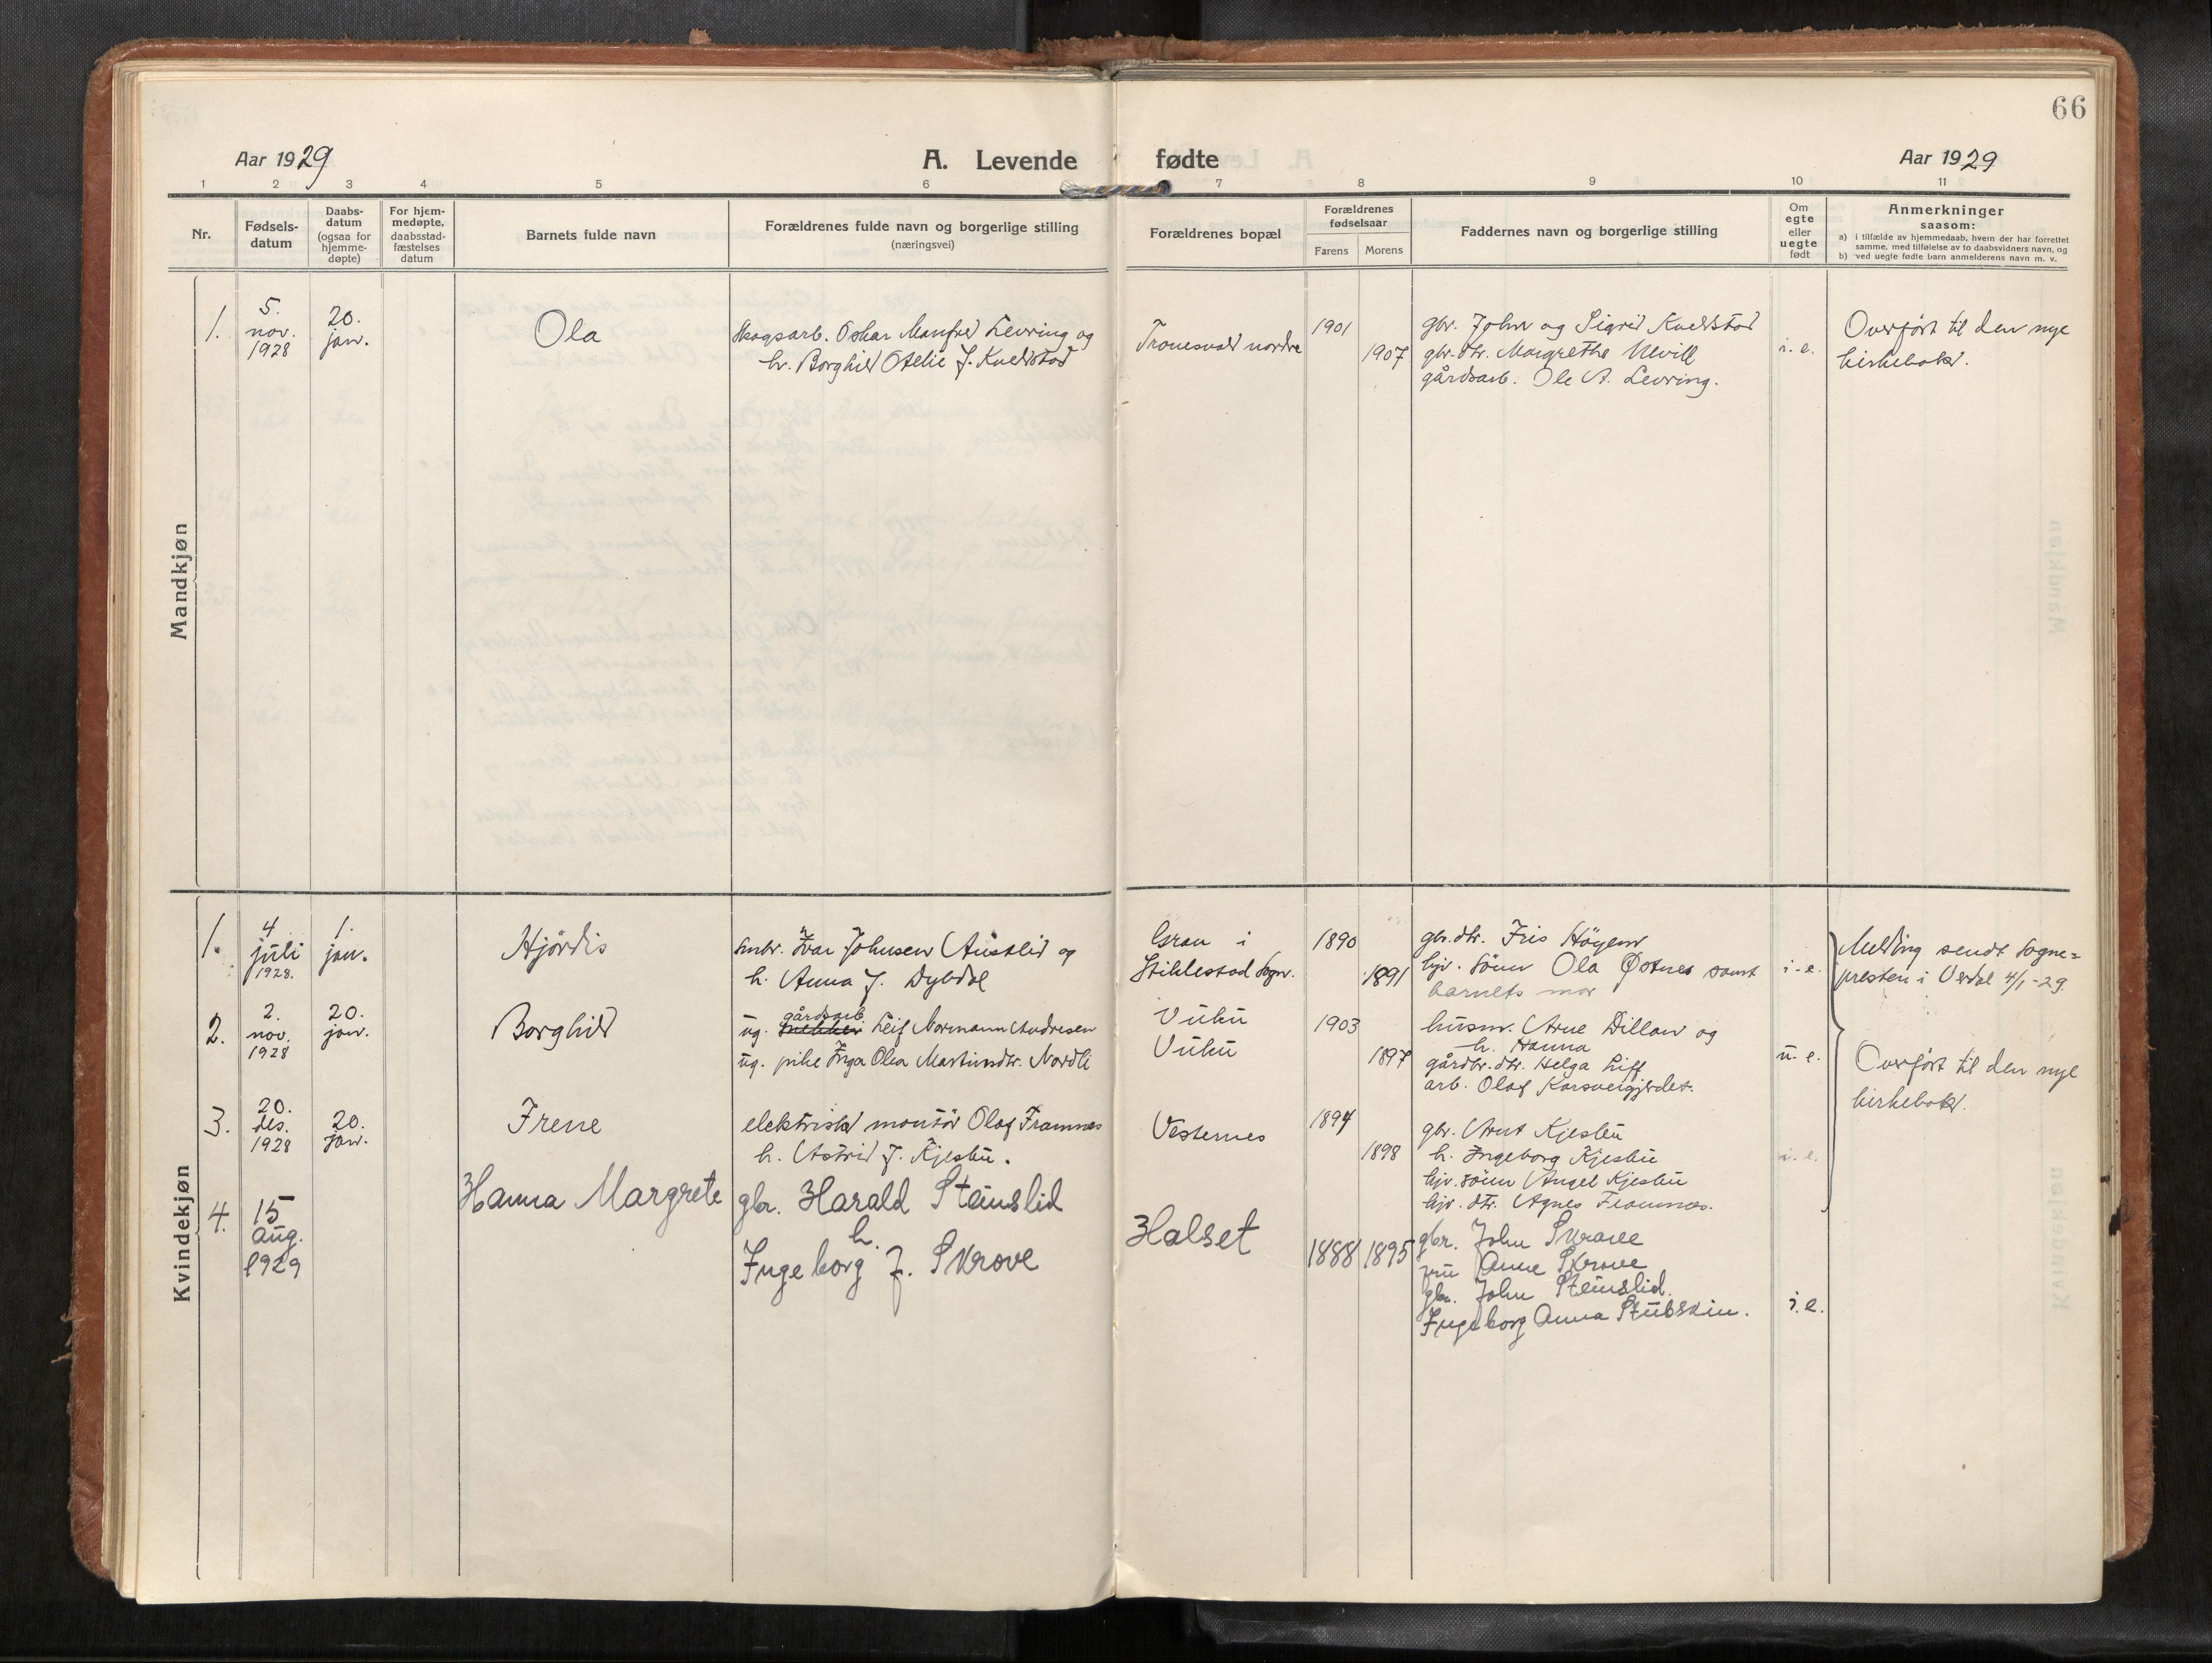 66
Aar 1929
A. Levende fødte
Aar 1929
1 2 3 4 5 6 7 8 9 10 11
Nr.
Fødsels-
datum
Daabs-
datum
(ogsaa for
hjemme-
døpte)
For hjem-
medøpte,
daabsstad-
fæstelses
datum
Barnets fulde navn
Forældrenes fulde navn og borgerlige stilling
(næringsvei)
Forældrenes bopæl
Forældrenes
fødselsaar
Farens Morens
Faddernes navn og borgerlige stilling
Om
egte
eller
uegte
født
Anmerkninger
saasom:
a) i tilfælde av hjemmedaab, hvem der har forrettet
samme, med tilføielse av to daabsvidners navn, og
b) ved uegte fødte barn anmelderens navn m. v.
Mandkjøn
1.
5.
nov.
1928
20.
jan.
Ola
Skogsarb. Oskar Manfred Levring og
h. Borghild Otelie J. Kvelstad
Tronesvald nordre
1901
1907
gbr. John og Sigrid Kvelstad
gbr. dtr. Margrethe Nevill
gårdsarb. Ole A. Levring.
i. e.
Overført til den nye
kirkebok.
Kvindekjøn
1.
4
juli
1928.
1.
jan.
Hjördis
smbr. Ivar Johnsen Austlid og
h. Anna J. Dybdal
Gran i
Stiklestad sogn.
1890
1891
gbr. dtr. Iris Höyem
hjv. sönn Ola Østnes samt
barnets mor
i. e.
Melding sendt sogne=
presten i Verdal 4/1-29.
2.
2.
nov.
1928
20.
jan.
Borghild
gårdsarb.
ug. Leif Normann Andresen
ug. pike Inga Olea Martinsdtr. Nordli
Vuku
Vuku
1903
1897
husm. Arne Dillan og
h. Hanna
gårdbr. dtr. Helga Liff
arb. Olaf Karsveigjerdet.
u. e.
Overført til den nye
kirkebok.
3.
20.
des.
1928
20.
jan.
Irene
elektrisk montör Olaf Framnes
h. Astrid J. Kjesbu.
Vesternes
1894
1898
gbr. Arnt Kjesbu
h. Ingeborg Kjesbu
hjv. sönn Angel Kjesbu
hjv. dtr. Agnes Framnes.
i. e.
4.
15
aug.
1929
Hanna Margrete
gbr. Harald Steinslid
h.
Ingeborg J. Skrove
Halset
1888 1895
gbr. John Skrove
fru Anne Skrove
gbr. John Steinslid.
Ingeborg Anna Stubskin.
i. e.